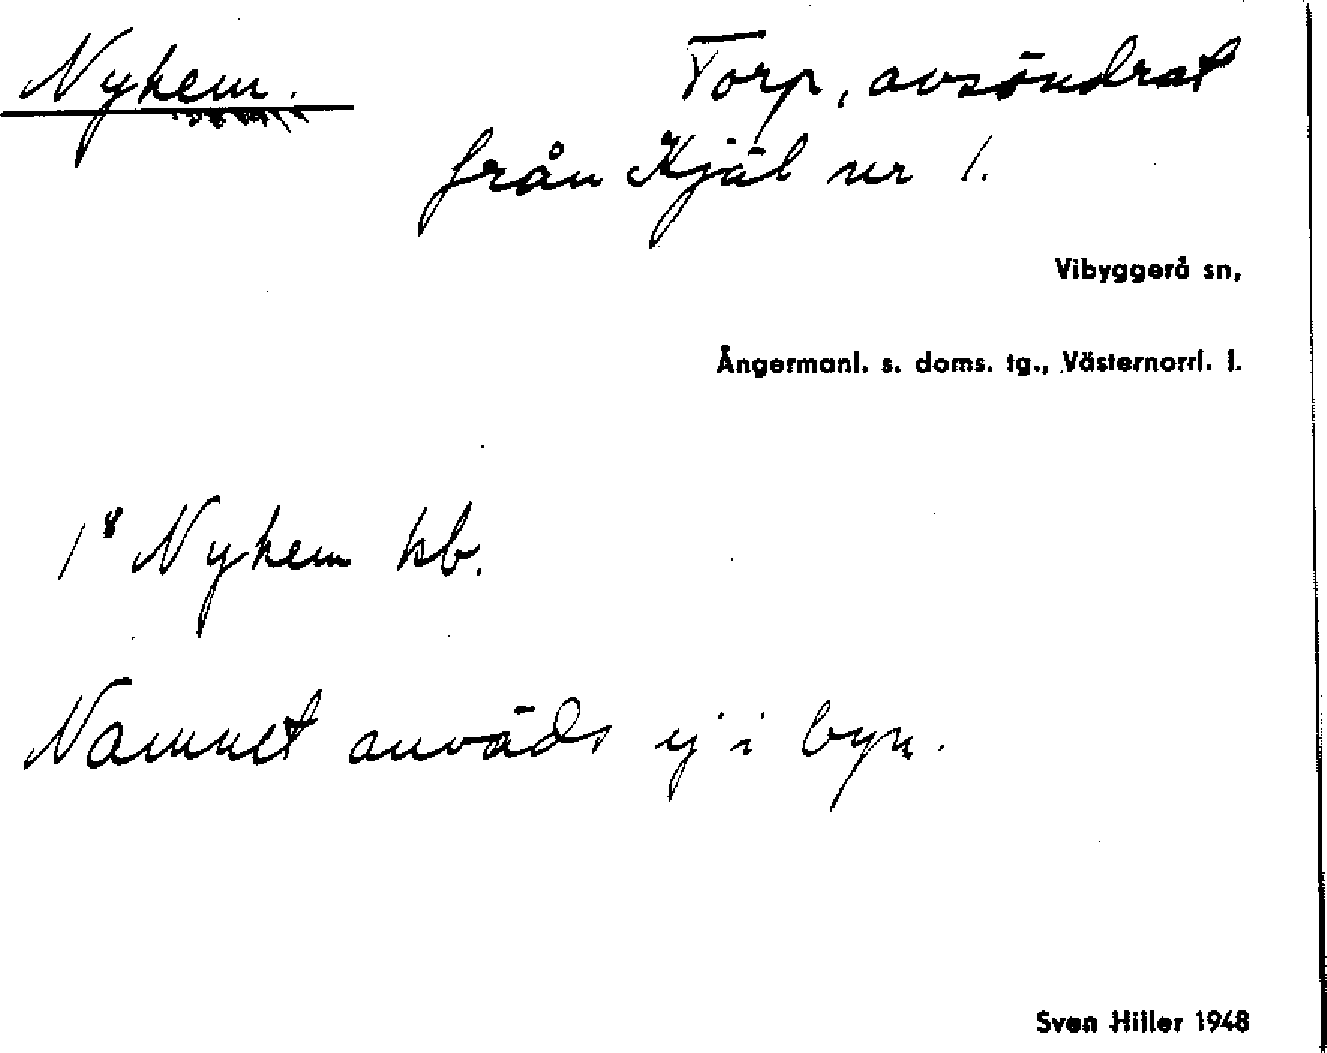 Nyhem.
Torp, avsöndrat
från Kjäl nr 1.
Vibyggerå sn,
Ångermanl. s. doms. tg., Västernorrl. l.
1⁸ Nyhem kb.
Namnet anväds ej i byn.
Sven Hiller 1948